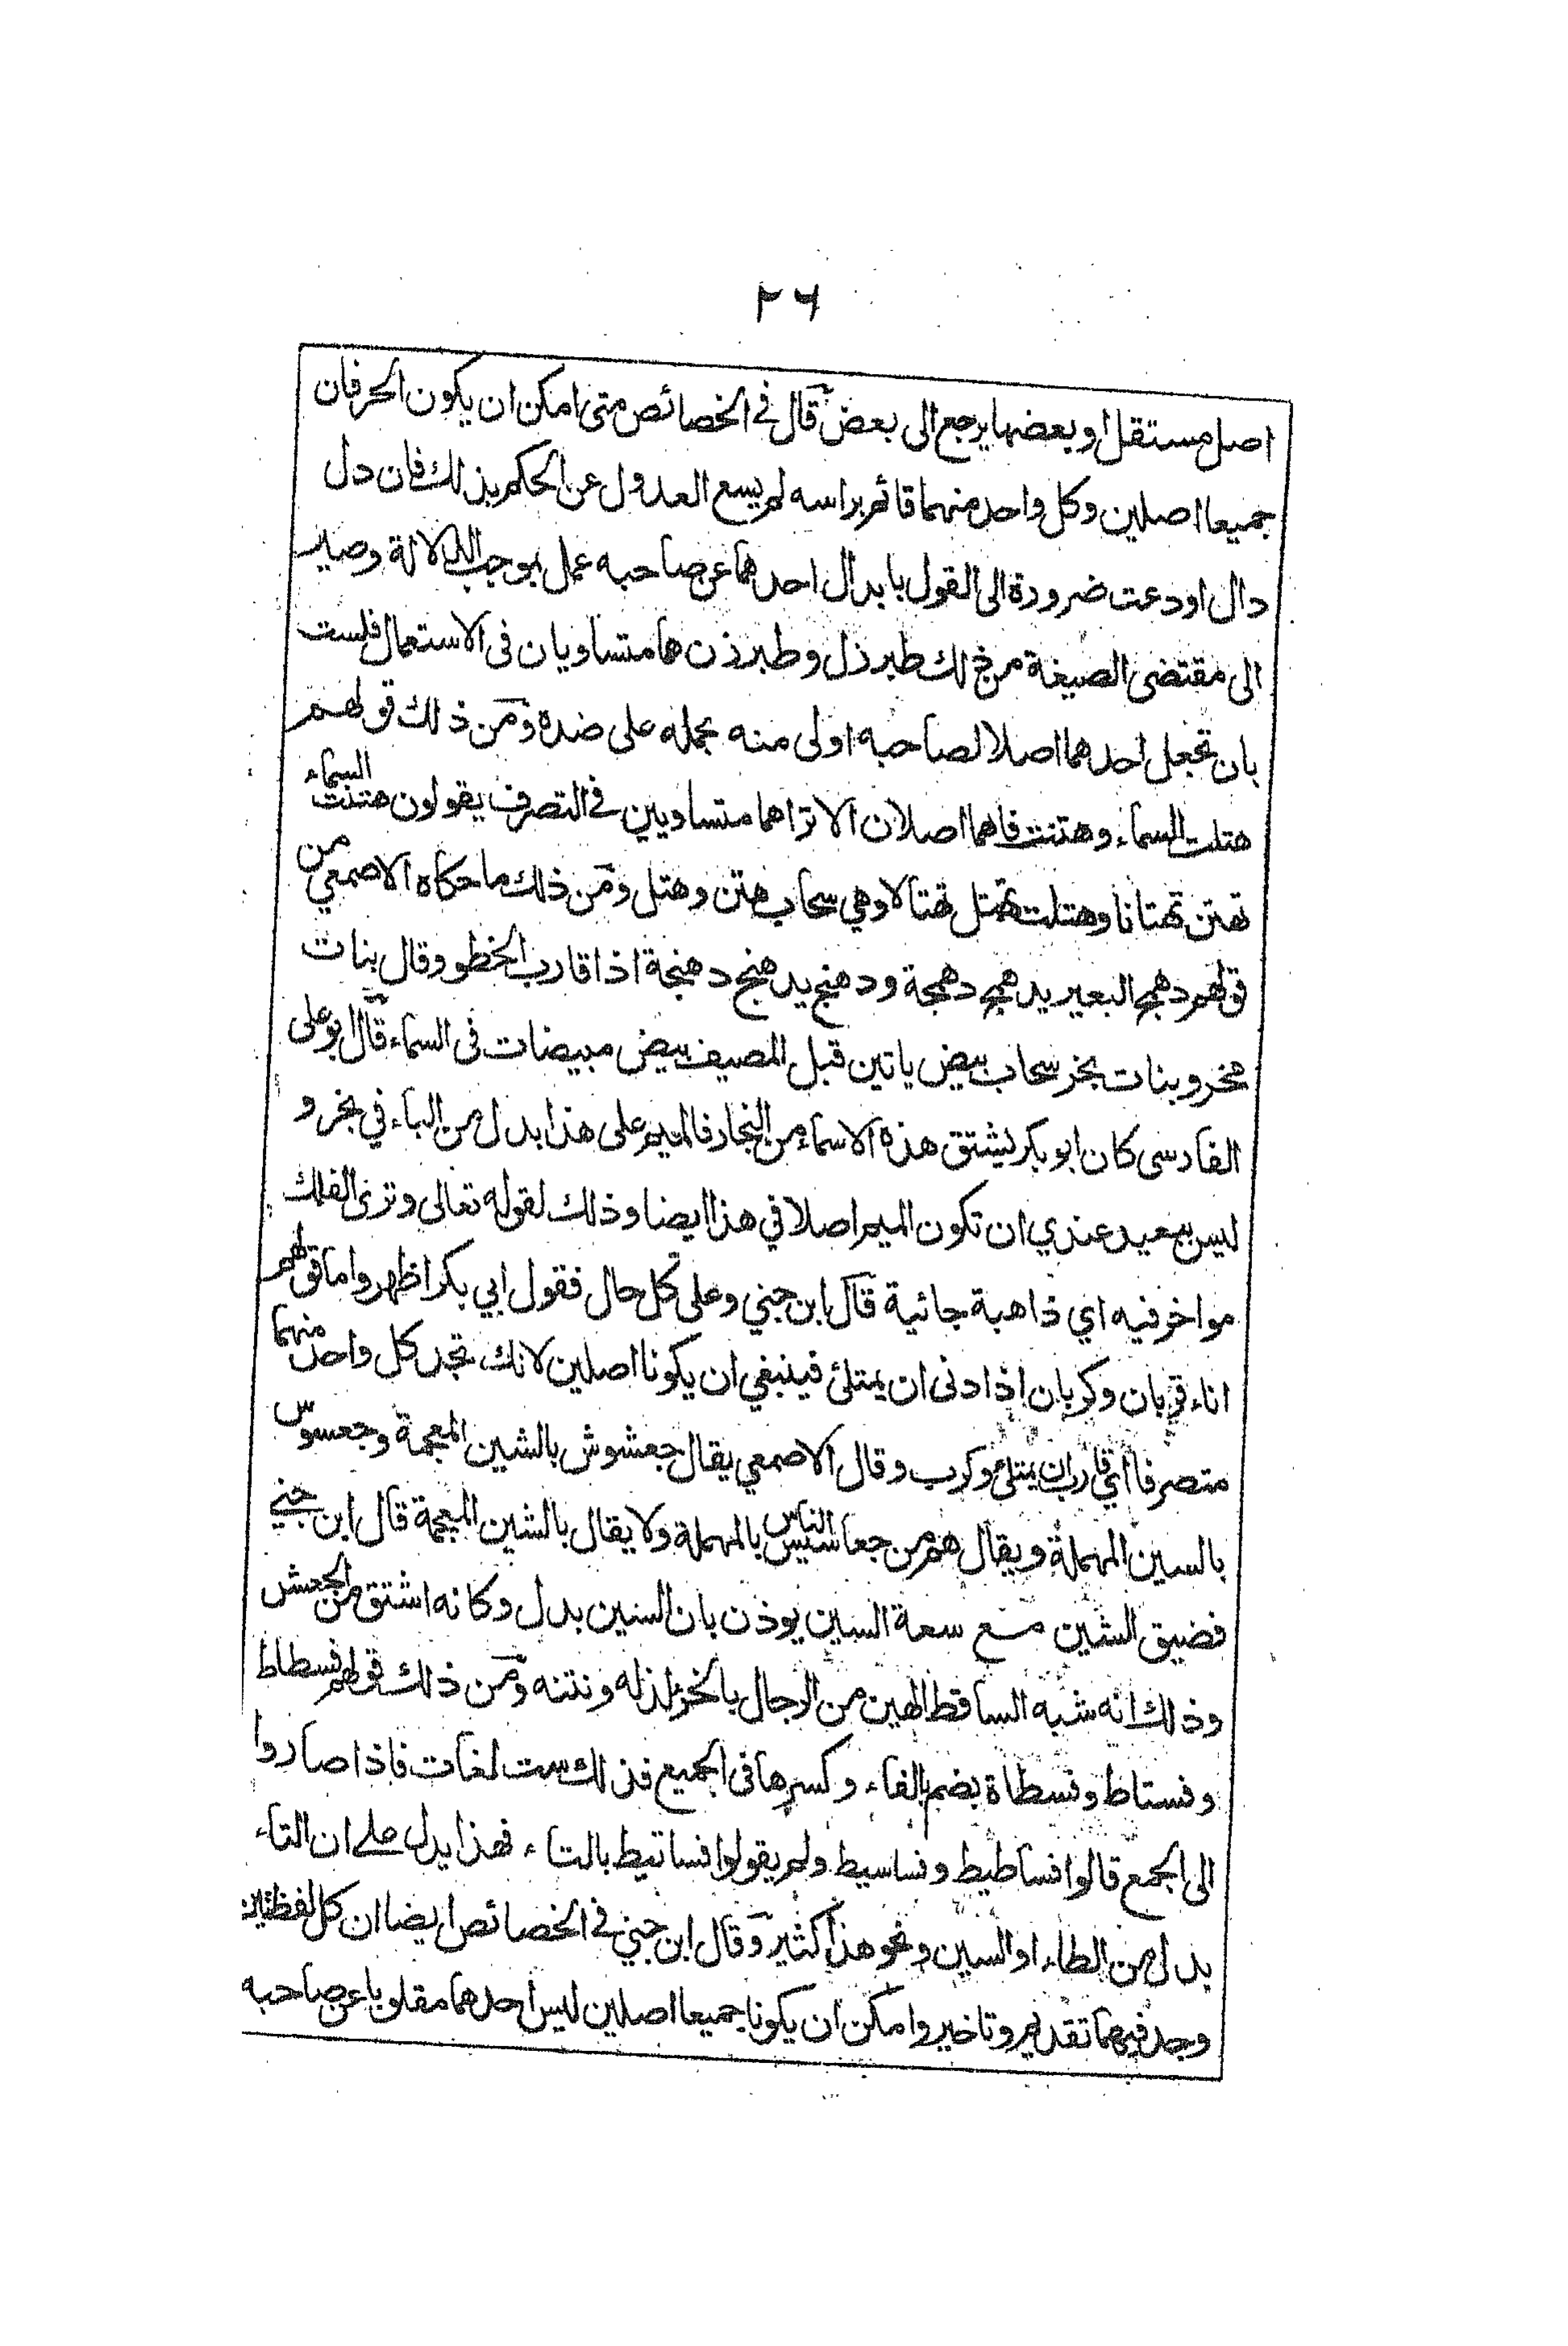 ٢٦
اصل مستقل او بعضها يرجع الى بعض قال في الخصائص متى امكن ان يكون الحرفان
جميعا اصلين وكل واحد منهما قائم براسه لم يسع العدول عن الحكم بذلك فان دل
دال او دعت ضرورة الى القول بابدال احدهما عن صاحبه عمل بموجب الدلالة وصير
الى مقتضى الصيغة من ذلك طبرزل وطبرزن هما متساويان في الاستعمال فلست
بان تجعل احدهما اصلا لصاحبه اولى منه بجمله على ضده ومن ذلك قولهم
هتلت السماء وهتنت فاهما اصلان الا تراهما متساويين في التصرف يقولون هتنت السماء
تهتن تهتانا وهتلت تهتل تهتالا وهي سحاب هتن وهتل ومن ذلك ما حكاه الاصمعي من
قولهم دهمج البعير يدهمج دهمجة ودهنج يدهنج دهنجة اذا قارب الخطو وقال بنات
مخر وبنات بخر سحاب بيض ياتين قبل المصيف بيض مبيضات في السماء قال ابو على
الفارسى كان ابو بكر يشتق هذه الاسماء من البخار فالميم على هذا بدل من الباء في بخر و
ليس ببعيد عندي ان تكون الميم اصلا في هذا ايضا وذلك لقوله تعالى وترى الفلك
مواخر فيه اي ذاهبة جائية قال ابن جني وعلى كل حال فقول ابي بكر اظهر واما قولهم
اناء قربان وكربان اذا دنى ان يمتلئ فينبغي ان يكونا اصلين لانك تجد كل واحد منهما
متصرفا أي قارب ان يمتلئ وكرب وقال الاصمعي يقال جعشوش بالشين المعجمة وجعسوس
بالسين المهملة ويقال هم من جعاسيس الناس بالمهملة ولا يقال بالشين المعجمة قال ابن جني
فضيق الشين مع سعة السين يوذن بان الشين بدل وكانه اشتق من الجعش
وذلك انه شبه الساقط المهين من الرجال بالخرء لذله ونتنه ومن ذلك قولهم فسطاط
وفستاط وفسطاة بضم الفاء وكسرها في الجميع فذلك ست لغات فاذا صاروا
الى الجمع قالوا فساطيط وفساسيط ولم يقولوا فساتيط بالتاء فهذا يدل على ان التاء
بدل من الطاء او السين ونحو هذا كثير وقال ابن جني في الخصائص ايضا ان كل لفظتين
وجد فيهما تقديم وتاخير وامكن ان يكونا جميعا اصلين ليس احدهما مقلوبا عن صاحبه